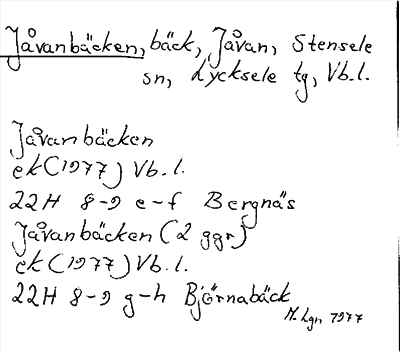 Jåvanbäcken, bäck, Jåvan, Stensele
sn, Lycksele tg, Vb.l.
Jåvanbäcken
ek (1977) Vb.l.
22H 8-9 e-f Bergnäs
Jåvanbäcken (2 ggr)
ek (1977) Vb.l.
22H 8-9 g-h Björnabäck
M. Lgn 1977